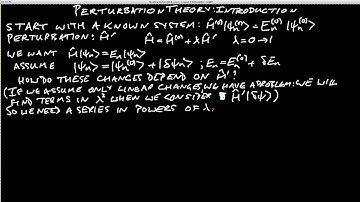 PERTURBATION THEORY: INTRODUCTION
START WITH A KNOWN SYSTEM: Ĥ⁽⁰⁾|ψₙ⁽⁰⁾⟩ = Eₙ⁽⁰⁾|ψₙ⁽⁰⁾⟩
PERTURBATION: Ĥ' Ĥ = Ĥ⁽⁰⁾ + λĤ' λ = 0 → 1
WE WANT Ĥ|ψₙ⟩ = Eₙ|ψₙ⟩
ASSUME |ψₙ⟩ = |ψₙ⁽⁰⁾⟩ + |δψₙ⟩ ; Eₙ = Eₙ⁽⁰⁾ + δEₙ
HOW DO THESE CHANGES DEPEND ON Ĥ'?
(IF WE ASSUME ONLY LINEAR CHANGES, WE HAVE A PROBLEM: WE WILL
FIND TERMS IN λ² WHEN WE CONSIDER Ĥ'|δψ⟩)
SO WE NEED A SERIES IN POWERS OF λ.